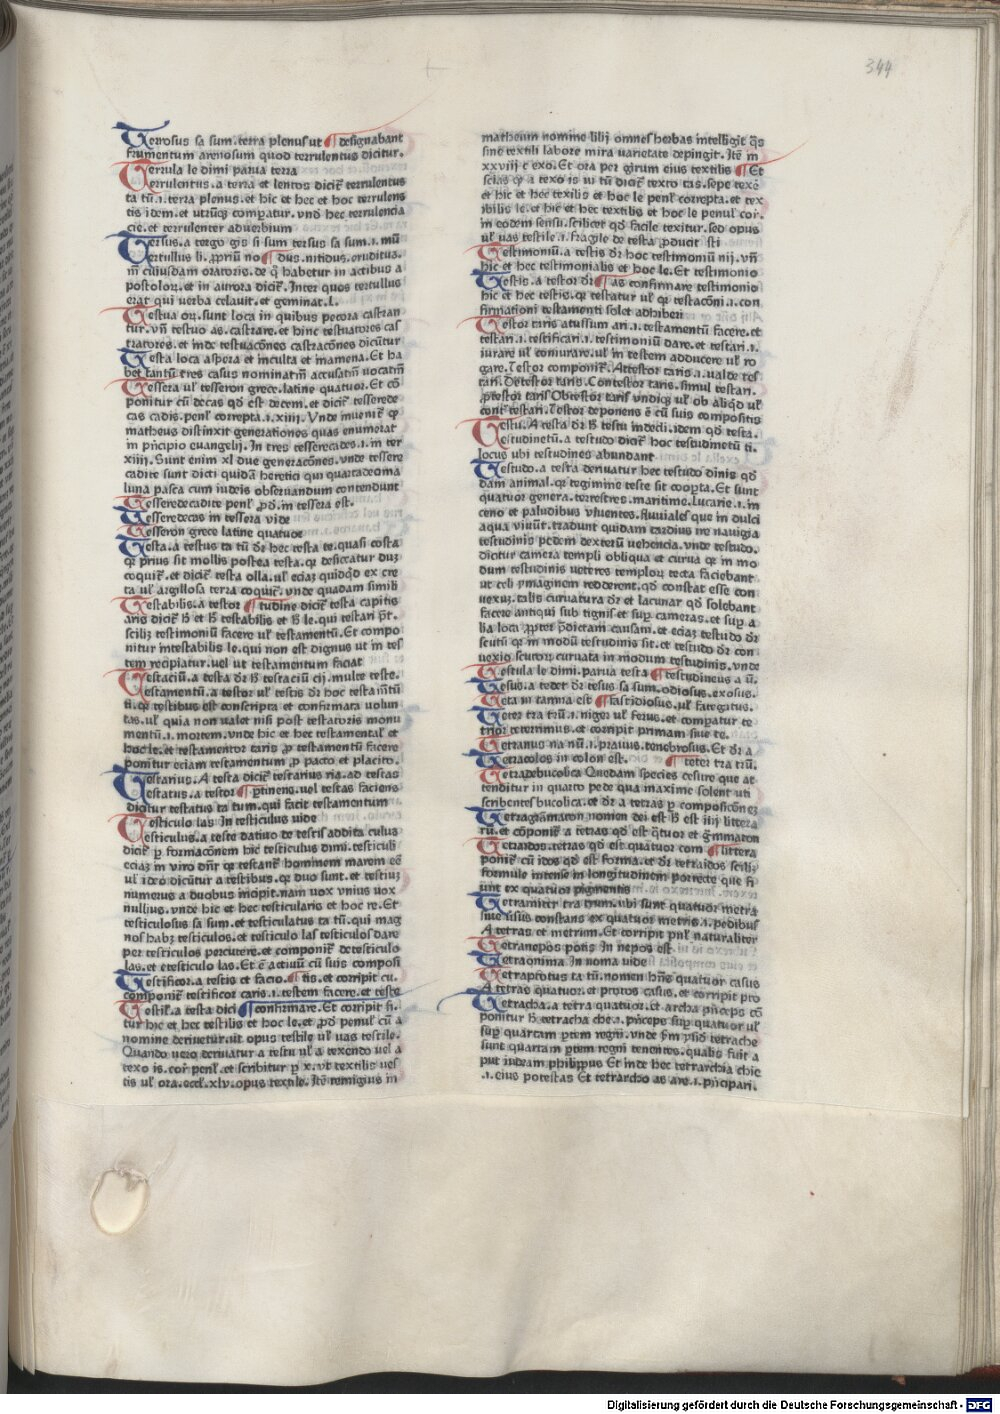 344
Terrosus sa sum. terra plenus ut ¶ designabant
frumentum arenosum quod terrulentus dicitur.
Terrula le dimi parua terra
Terrulentus. a terra et lentos dicit᷑ terrulentus
ta tū. i. terra plenus. et hic et hec et hoc terrulens
tis idem. et utrūq; compatur. vnd̄ hec terrulencia
cie. et terrulenter aduerbium
Tersus. a tergo gis si sum tersus sa sum. i. mū
Tertullus li. ꝓpriū no ¶ dus. nitidus. eruditus.
m̄ cuiusdam oratoris. de q̄ habetur in actibus a
postolor. et in aurora dicit᷑. Inter quos tertullus
erat qui uerba celauit. et geminat. l.
Testua orū. sunt loca in quibus pecora castran
tur. vn̄ testuo as. castrare. et hinc testuatores cas
tratores. et inde testuac̄ones castrac̄ones dicūtur
Testa loca aspera et inculta et inamena. Et ha
bet tantū tres casus nominatm̄ accusatm̄ uocatm̄
Tessera ul̄ tesseron grece. latine quatuor. Et cō
ponitur cū decas qd̄ est decem. et dicit᷑ tesserede
cas cadis. penl̄ correpta. i. xiiij. Vnde inuenit᷑ ꝙ
matheus distinxit generationes quas enumerat
in pn̄cipio euangelij. In tres tesserecades. i. in ter
xiiij. Sunt enim xl due generac̄ones. vnde tessere
cadite sunt dicti quidā heretici qui quartadecima
luna pasca cum iudeis obseruandum contendunt
Tesseredecadite penl̄ ꝓd̄. in tessera est.
Tesseredecas in tessera vide
Tesseron grece latine quatuor
Testa. a testus ta tū dr̄ hec testa te. quasi costa
qr̄ prius sit mollis postea testa. qr̄ desiccatur dūꝫ
coquit᷑. et dicit᷑ testa olla. ul̄ eciaꝫ quidq̄d ex cre
ta ul̄ argillosa terra coquit᷑. vnde quadam simili
Testabilis. a testor ¶ tudine dicit᷑ testa capitis
aris dicit᷑ h̄ et h̄ testabilis et h̄ le. qui testari pt̄.
sciliꝫ testimoniū facere ul̄ testamentū. Et compo
nitur intestabilis le. qui non est dignus ut in tes
tem recipiatur. uel ut testamentum faciat
Testaciū. a testa dr̄ h̄ testaciū cij. multe teste.
Testamentū. a testor ul̄ testis dr̄ hoc testam̄tū
ti. qr̄ testibus est conscripta et confirmata uolun
tas. ul̄ quia non ualet nisi post testatoris monu
mentū. i. mortem. vnde hic et hec testamental̄ et
hoc le. et testamentor taris ꝓ testamentū facere
ponitur eciam testamentum ꝓ pacto et placito.
Testarius. A testa dicit᷑ testarius ria. ad testas
Testatus. a testor ¶ ꝑtinens. uel testas faciens
dicitur testatus ta tum. qui facit testamentum
Testiculo las In testiculus uide
Testiculus. a teste datiuo de testis addita culus
dicit᷑ ꝑ formac̄onem hic testiculus dimi. testiculi
eciaꝫ in viro dn̄r qr̄ testant᷑ hominem marem eē
ul̄ ideo dicūtur a testibus. qr̄ duo sunt. et testiuꝫ
numerus a duobus incipit. nam uox vnius uox
nullius. vnde hic et hec testicularis et hoc re. Et
testiculosus sa sum. et testiculatus ta tū. qui mag
nos habꝫ testiculos. et testiculo las testiculos dare
per testiculos percutere. et componit᷑ detesticulo
las. et extesticulo las. Et ē actiuū cū suis composi
Testificor. a testis et facio. ¶ tis. et corripit cu.
componit᷑ testificor caris. i. testem facere. et teste
Testil̄. a testa dici ¶ confirmare. Et corripit fi.
tur hic et hec testilis et hoc le. et ꝓd̄ penul̄ cū a
nomine deriuetur. ut opus testile ul̄ uas testile.
Quando uero deriuatur a testu ul̄ a texendo uel a
texo is. cor̄ penl̄. et scribitur ꝑ x. vt textilis ues
tis ul̄ ora. eccl̄. xlv. opus textile. Itē remigius in
matheum nomine lilij omnes herbas intelligit q̄s
sine textili labore mira varietate depingit. Itē in
xxviij c exo. Et ora per girum eius textilis ¶ Et
scias ꝙ a texo is ui tū dicit᷑ texto tas. sepe texe᷑
et hic et hec texilis et hoc le penl̄ correpta. et tex
ibilis le. et hic et hec textilis et hoc le penul̄ cor̄.
in eodem sensu. scilicet qd̄ facile texitur. sed opus
ul̄ uas testile. i. fragile de testa ꝓducit sti
Testimoniū. a testis dr̄ hoc testimoniū nij. vn̄
hic et hec testimonialis et hoc le. Et testimonio
Testis. a testor dr̄ ¶ as confirmare testimonio
hic et hec testis. qr̄ testatur ul̄ qr̄ testac̄oni. i. con
firmationi testamenti solet adhiberi
Testor taris atussum ari. i. testamentū facere. et
testari. i. testificari. i. testimoniū dare. et testari. i.
iurare ul̄ coniurare. ul̄ in testem adducere ul̄ ro
gare. Testor componit᷑. Attestor taris. i. ualde tes
tari. Detestor taris. Contestor taris. simul testari.
ꝓtestor taris Obtestor taris vndiq; ul̄ ob aliq̄d ul̄
cont᷑ testari. Testor deponens ē cū suis compositis
Testu. A testa dr̄ h̄ testu indecli. idem qd̄ testa.
Testudinetū. a testudo dicit᷑ hoc testudinetū ti.
locus vbi testudines abundant
Testudo. a testa deriuatur hec testudo dinis qd̄
dam animal. qr̄ tegimine teste sit coopta. Et sunt
quatuor genera. terrestres. maritime. lucarie. i. in
ceno et paludibus viuentes. fluuiales que in dulci
aqua viuūt. tradunt quidam tardius ire nauigia
testudinis pedem dexterū uehencia. vnde testudo.
dicitur camera templi obliqua et curua qr̄ in mo
dum testudinis ueteres temploꝝ tecta faciebant
ut celi ymaginem redderent. qd̄ constat esse con
uexuꝫ. talis curuatura dr̄ et lacunar qd̄ solebant
facere antiqui sub tignis et sup cameras. et sup a
lia loca ꝓpter p̄dictam causam. et eciaꝫ testudo dr̄
scutū qr̄ in modū testudinis sit. et testudo dr̄ con
uexio scutorꝝ curuata in modum testudinis. vnde
Testula le dimi. parua testa ¶ testudineus a ū.
Tesus. a tedet dr̄ tesus sa sum. odiosus. exosus.
Teta in tamna est ¶ fastidiosus. ul̄ fatigatus.
Teter tra trū. i. niger ul̄ ferus. et compatur te
trior teterrimus. et corripit primam siue te.
Tetranus na nū. i. prauus. tenebrosus. Et dr̄ a
Tetracolos in colon est. ¶ teter tra trū.
Tetradebucolica Quedam species cesure que at
tenditur in quarto pede qua maxime solent uti
scribentes bucolica. et dr̄ a tetras ꝑ composic̄oneꝫ
Tetragrāmaton nomen dei est h̄ est iiij littera
rū. et cōponit᷑ a tetras qd̄ est q̄tuor et g̃mmaton
Tetraidos. tetras qd̄ est quatuor com ¶ littera
ponit᷑ cū idos qd̄ est forma. et dr̄ tetraidos sciliꝫ
formule intense in longitudinem porrecte que fi
unt ex quatuor pigmentis
Tetrameter tra trum. vbi sunt quatuor metra
siue ūsus constans ex quatuor metris. i. pedibus
A tetras et metrum. Et corripit pnl̄ naturaliter
Tetranepos potis In nepos est.
Tetraonima. In noma uide
Tetraprotus ta tū. nomen hn̄s quatuor casus
A tetras quatuor. et protos casus. et corripit pro
Tetracha. a tetra quatuor. et archa pn̄ceps cō
ponitur h̄ tetracha che. i. pn̄ceps sup quatuor ul̄
sup quartam ꝑtem regni. vnde ꝑm ysid̄ tetrache
sunt quartam ꝑtem regni tenentes. qualis fuit a
put iudeam philippus Et inde hec tetrarchia chie
. i. eius potestas Et tetrarcho as are. i. pn̄cipari.
Digitalisierung gefördert durch die Deutsche Forschungsgemeinschaft - DFG